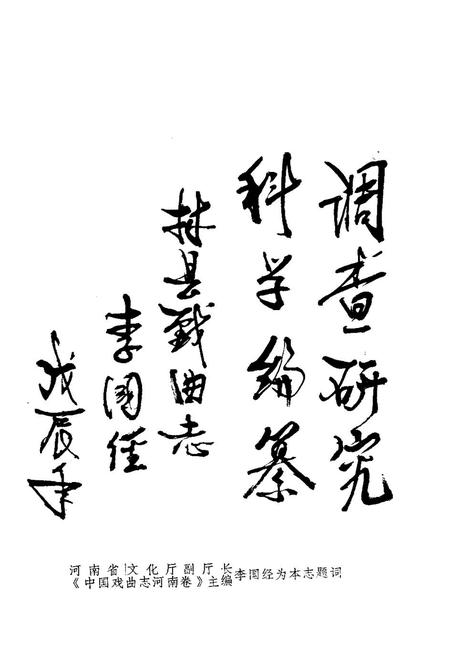 调查研究
科学编纂
林县戏曲志
李国经
戊辰年
河南省文化厅副厅长
《中国戏曲志河南卷》主编李国经为本志题词